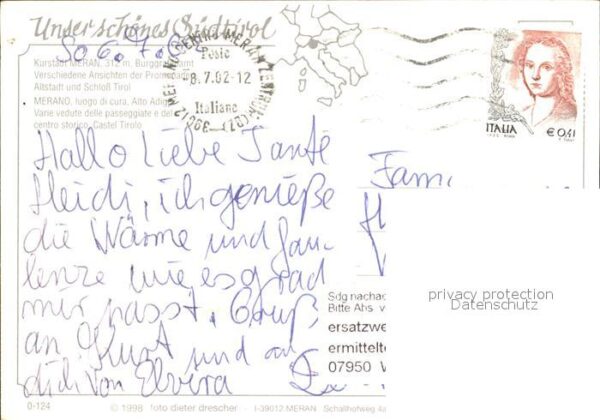 Unser schönes Südtirol
So 6.7.02
Kurstadt MERAN, 312 m, Burggrafenamt
Verschiedene Ansichten der Promenade
Altstadt und Schloß Tirol
MERANO, luogo di cura, Alto Adige
Varie vedute delle passeggiate e del
centro storico, Castel Tirolo
39012 MERANO CENTRO MERAN ZENTRUM (BZ)
Poste
8.7.02-12
Italiane
ITALIA
€ 0,41
Hallo liebe Tante
Heidi, ich genieße
die Wärme und fau-
lenze wie es grad
mir passt. Gruß
an Kurt und an
dich von Elvira
Fam
Sdg nachac
Bitte Ahs. v
ersatzwe
ermittelte
07950 W
privacy protection
Datenschutz
0-124
© 1998 foto dieter drescher - I-39012 MERAN Schallhofweg 4a